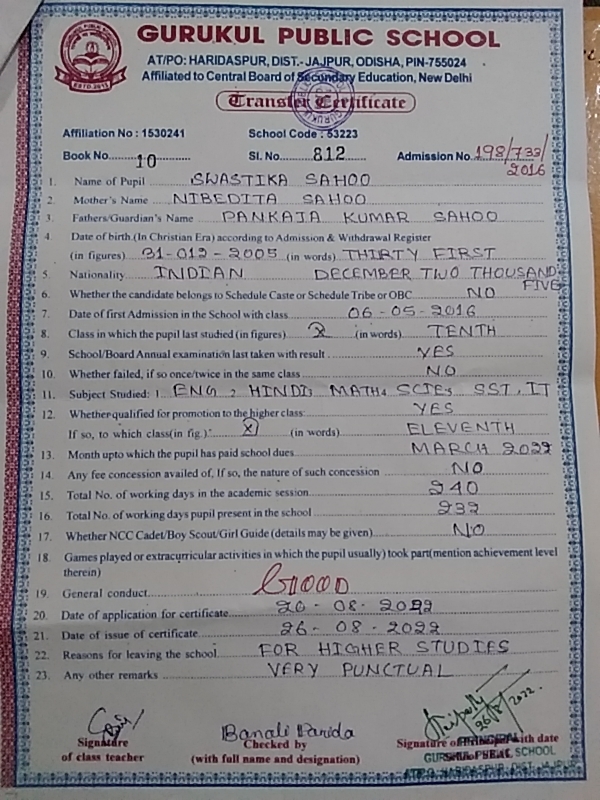 GURUKUL PUBLIC SCHOOL
AT/PO: HARIDASPUR, DIST.- JAJPUR, ODISHA, PIN-755024
Affiliated to Central Board of Secondary Education, New Delhi
Transfer Certificate
Affiliation No : 1530241 School Code : 53223
Book No. 10 Sl. No. 812 Admission No. 198/733/2016
1. Name of Pupil SWASTIKA SAHOO
2. Mother's Name NIBEDITA SAHOO
3. Fathers/Guardian's Name PANKAJA KUMAR SAHOO
4. Date of birth (In Christian Era) according to Admission & Withdrawal Register
(in figures) 31-012-2005 (in words) THIRTY FIRST
5. Nationality INDIAN DECEMBER TWO THOUSAND FIVE
6. Whether the candidate belongs to Schedule Caste or Schedule Tribe or OBC NO
7. Date of first Admission in the School with class 06-05-2016
8. Class in which the pupil last studied (in figures) X (in words) TENTH
9. School/Board Annual examination last taken with result YES
10. Whether failed, if so once/twice in the same class NO
11. Subject Studied: 1. ENG 2 HINDI 3 MATH 4 SCI 5 SST, IT
12. Whether qualified for promotion to the higher class YES
If so, to which class(in fig.) XI (in words) ELEVENTH
13. Month upto which the pupil has paid school dues MARCH 2022
14. Any fee concession availed of, If so, the nature of such concession NO
15. Total No. of working days in the academic session 240
16. Total No. of working days pupil present in the school 232
17. Whether NCC Cadet/Boy Scout/Girl Guide (details may be given) NO
18. Games played or extracurricular activities in which the pupil usually) took part(mention achievement level
therein)
19. General conduct GOOD
20. Date of application for certificate 26-08-2022
21. Date of issue of certificate 26-08-2022
22. Reasons for leaving the school FOR HIGHER STUDIES
23. Any other remarks VERY PUNCTUAL
26/8/2022
Banali Parida
Signature Checked by Signature of Principal with date
of class teacher (with full name and designation)
PRINCIPAL
GURUKUL PUBLIC SCHOOL
AT/PO-HARIDASPUR, DIST-JAJPUR